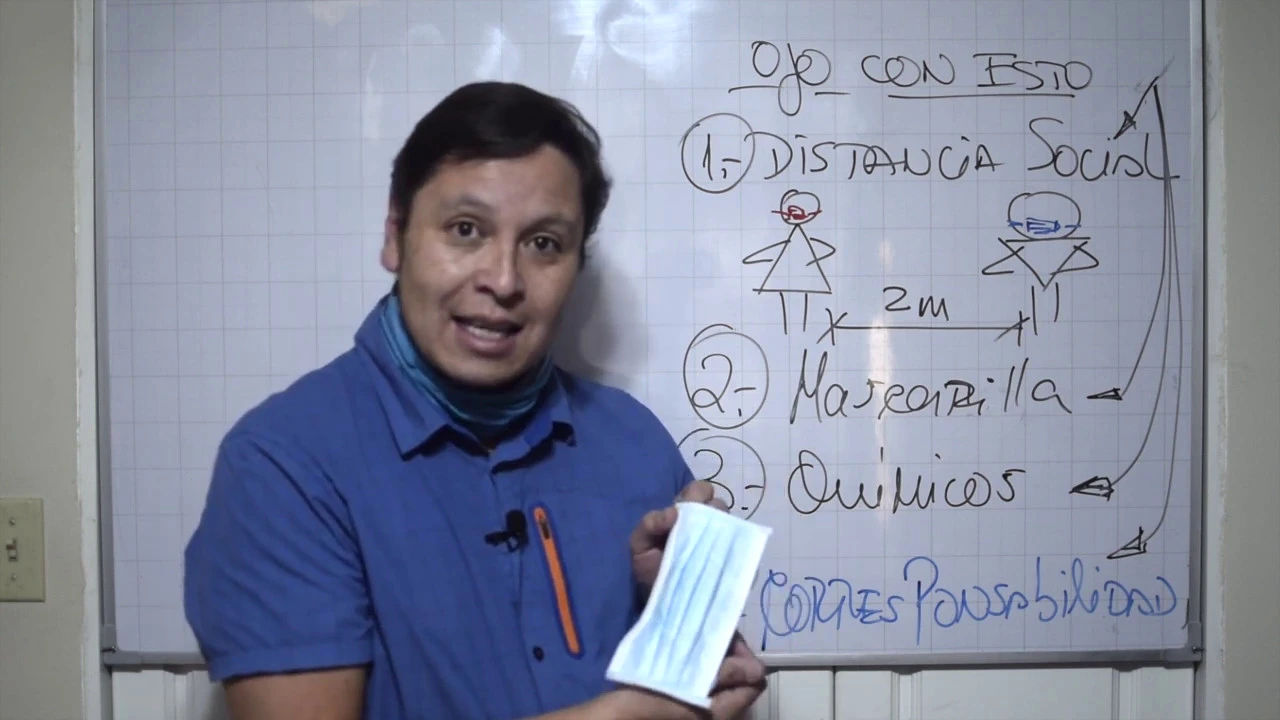 Ojo CON ESTO
1.- DISTANCIA SOCIAL
2m
2.- Mascarilla
3.- Químicos
CORRESPONSAbiliDAD